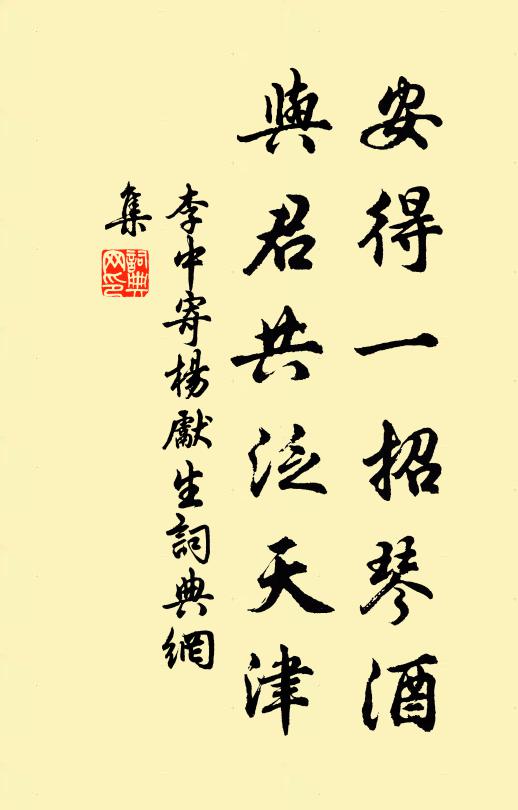 安得一招琴酒
與君共泛天津
李中寄楊獻生詞典網
集
詞典网印